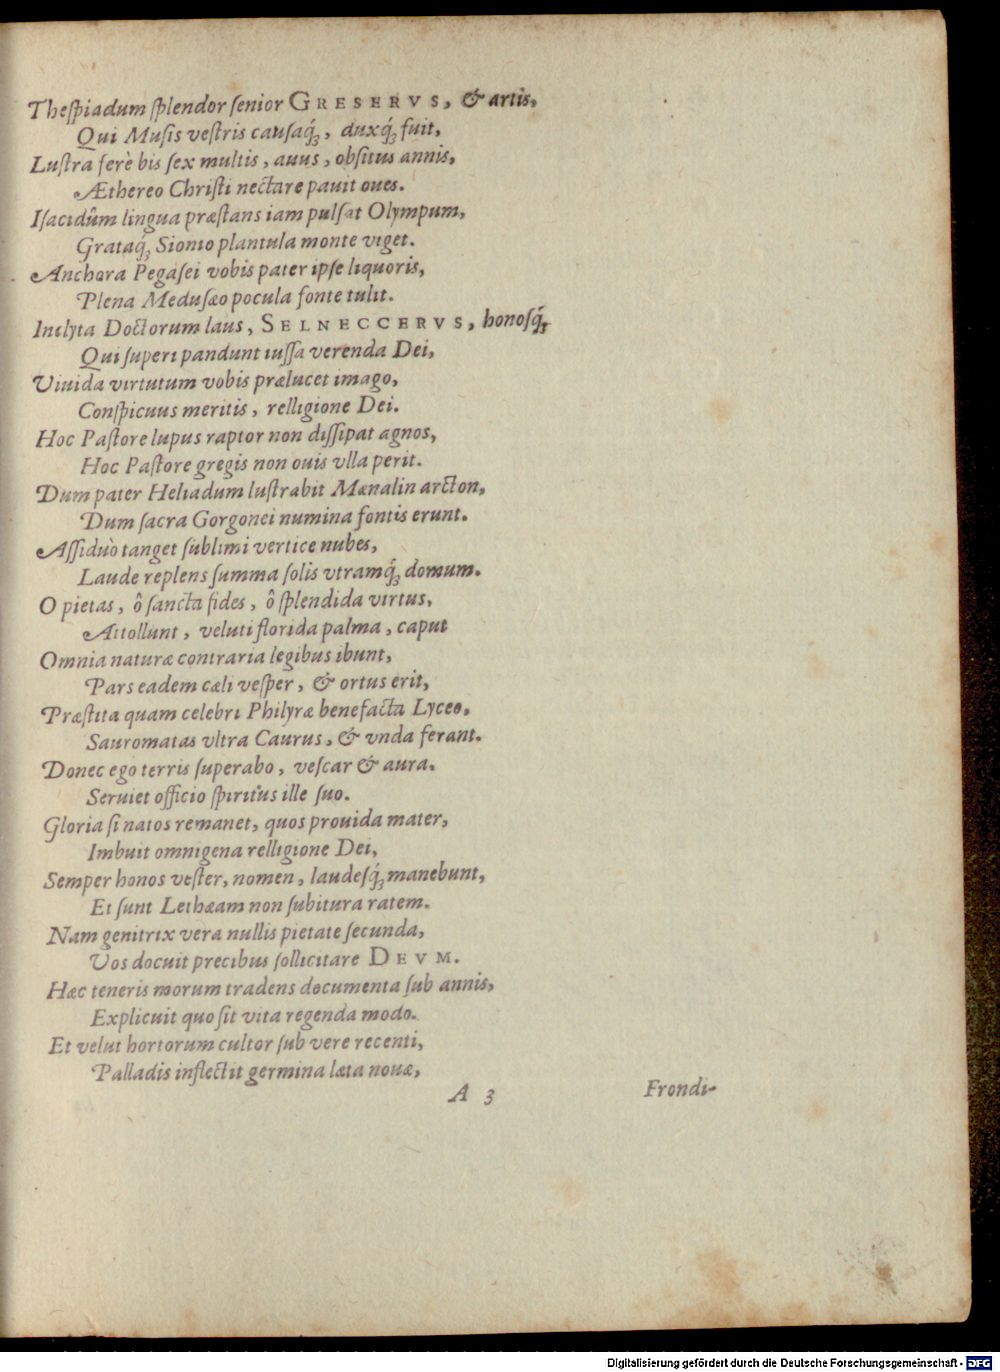 Theſpiadum ſplendor ſenior GRESERVS, & artis,
Qui Muſis veſtris cauſaq́;, duxq́; fuit,
Luſtra ferè bis ſex multis, auus, obſitus annis,
Æthereo Chriſti nectare pauit oues.
Iſacidûm lingua præſtans iam pulſat Olympum,
Grataq́; Sionio plantula monte viget.
Anchora Pegaſei vobis pater ipſe liquoris,
Plena Meduſæo pocula fonte tulit.
Inclyta Doctorum laus, SELNECCERVS, honoſq́;
Qui ſuperi pandunt iuſſa verenda Dei,
Viuida virtutum vobis prælucet imago,
Conſpicuus meritis, relligione Dei.
Hoc Paſtore lupus raptor non diſſipat agnos,
Hoc Paſtore gregis non ouis vlla perit.
Dum pater Heliadum luſtrabit Mænalin arcton,
Dum ſacra Gorgonei numina fontis erunt.
Aſſiduò tanget ſublimi vertice nubes,
Laude replens ſumma ſolis vtramq́; domum.
O pietas, ô ſancta fides, ô ſplendida virtus,
Attollunt, veluti florida palma, caput
Omnia naturæ contraria legibus ibunt,
Pars eadem cæli veſper, & ortus erit,
Præſtita quam celebri Philyræ benefacta Lyceo,
Sauromatas vltra Caurus, & vnda ferant.
Donec ego terris ſuperabo, veſcar & aura.
Seruiet officio ſpiritus ille ſuo.
Gloria ſi natos remanet, quos prouida mater,
Imbuit omnigena relligione Dei,
Semper honos veſter, nomen, laudeſq́; manebunt,
Et ſunt Lethæam non ſubitura ratem.
Nam genitrix vera nullis pietate ſecunda,
Vos docuit precibus ſollicitare DEVM.
Hæc teneris morum tradens documenta ſub annis,
Explicuit quo ſit vita regenda modo.
Et velut hortorum cultor ſub vere recenti,
Palladis inflectit germina læta nouæ,
A 3 Frondi-
Digitalisierung gefördert durch die Deutsche Forschungsgemeinschaft - DFG